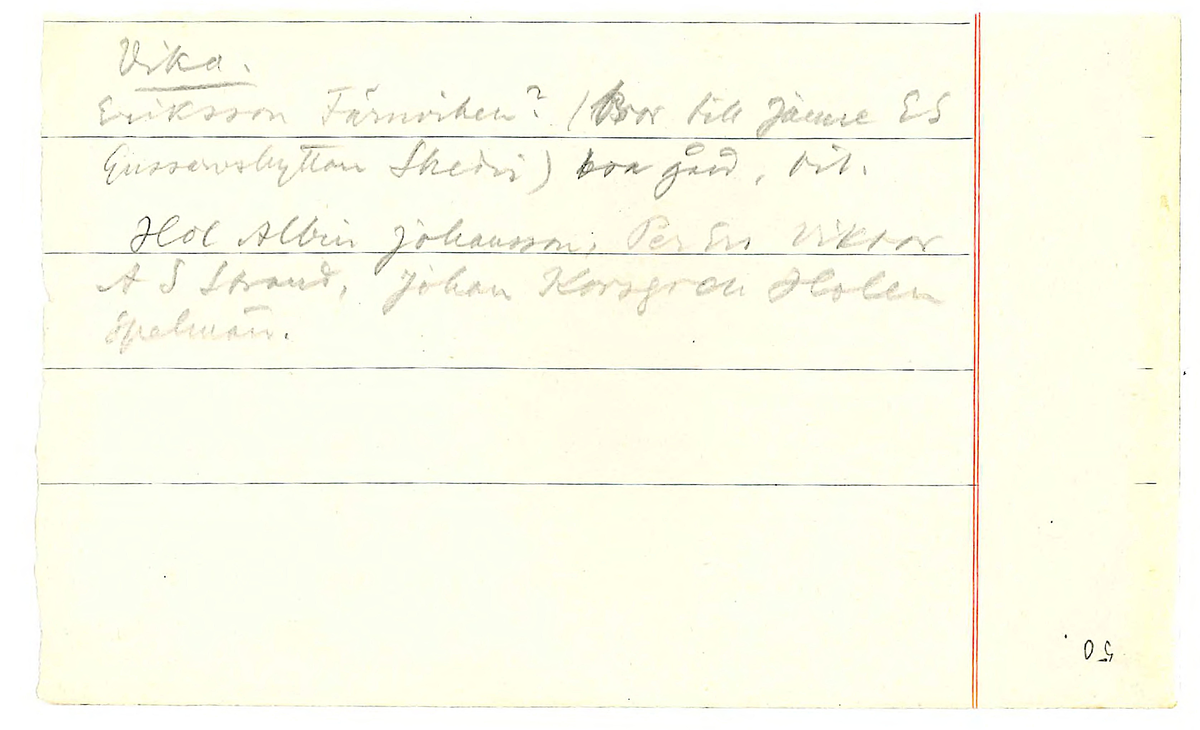 Vika.
Eriksson Färnviken? (Bror till Jämse E S
Gussarvshyttan Skedvi) bra gård, vit.
Hol Albin Johansson, Per Ers Viktor
A S Strand, Johan Korsgren Holen
Spelmän.
50